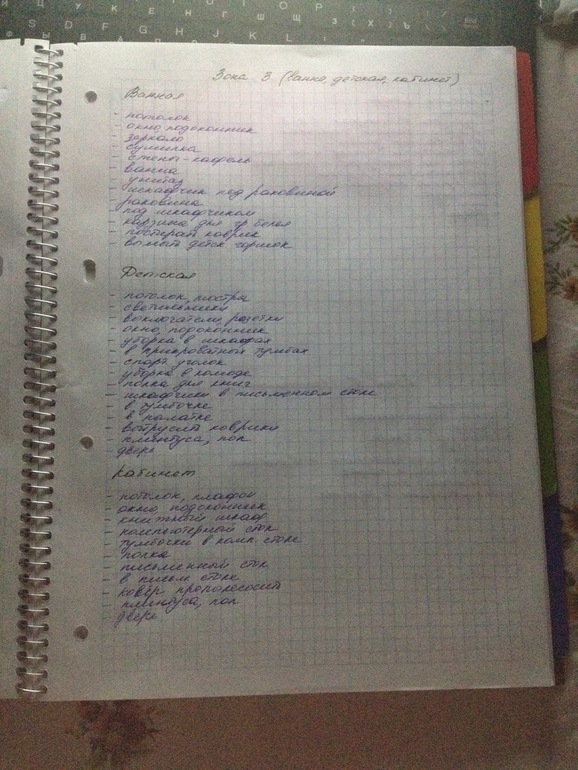 Зона 3 (ванна, детская, кабинет)
Ванная
- потолок
- окно подоконник
- зеркало
- сушилка
- стены-кафель
- ванна
- унитаз
- шкафчик под раковиной
раковина
- под шкафчиком
- корзина для гр белья
- постирать коврик
- вымыть детск горшок
Детская
- потолок, люстра
- светильники
- выключатели, розетки
- окно, подоконник
- уборка в шкафах
- в прикроватных тумбах
- спорт уголок
- уборка в комоде
- полка для книг
- шкафчики в письменном столе
- в тумбочке
- в палатке
- вытрусить коврики
- плинтуса, пол
дверь
Кабинет
- потолок, плафон
- окно, подоконник
- книжный шкаф
- компьютерный стол
- тумбочки в комп. столе
- полка
- письменный стол
- в письм столе
- ковёр пропылесосить
- плинтуса, пол
- дверь